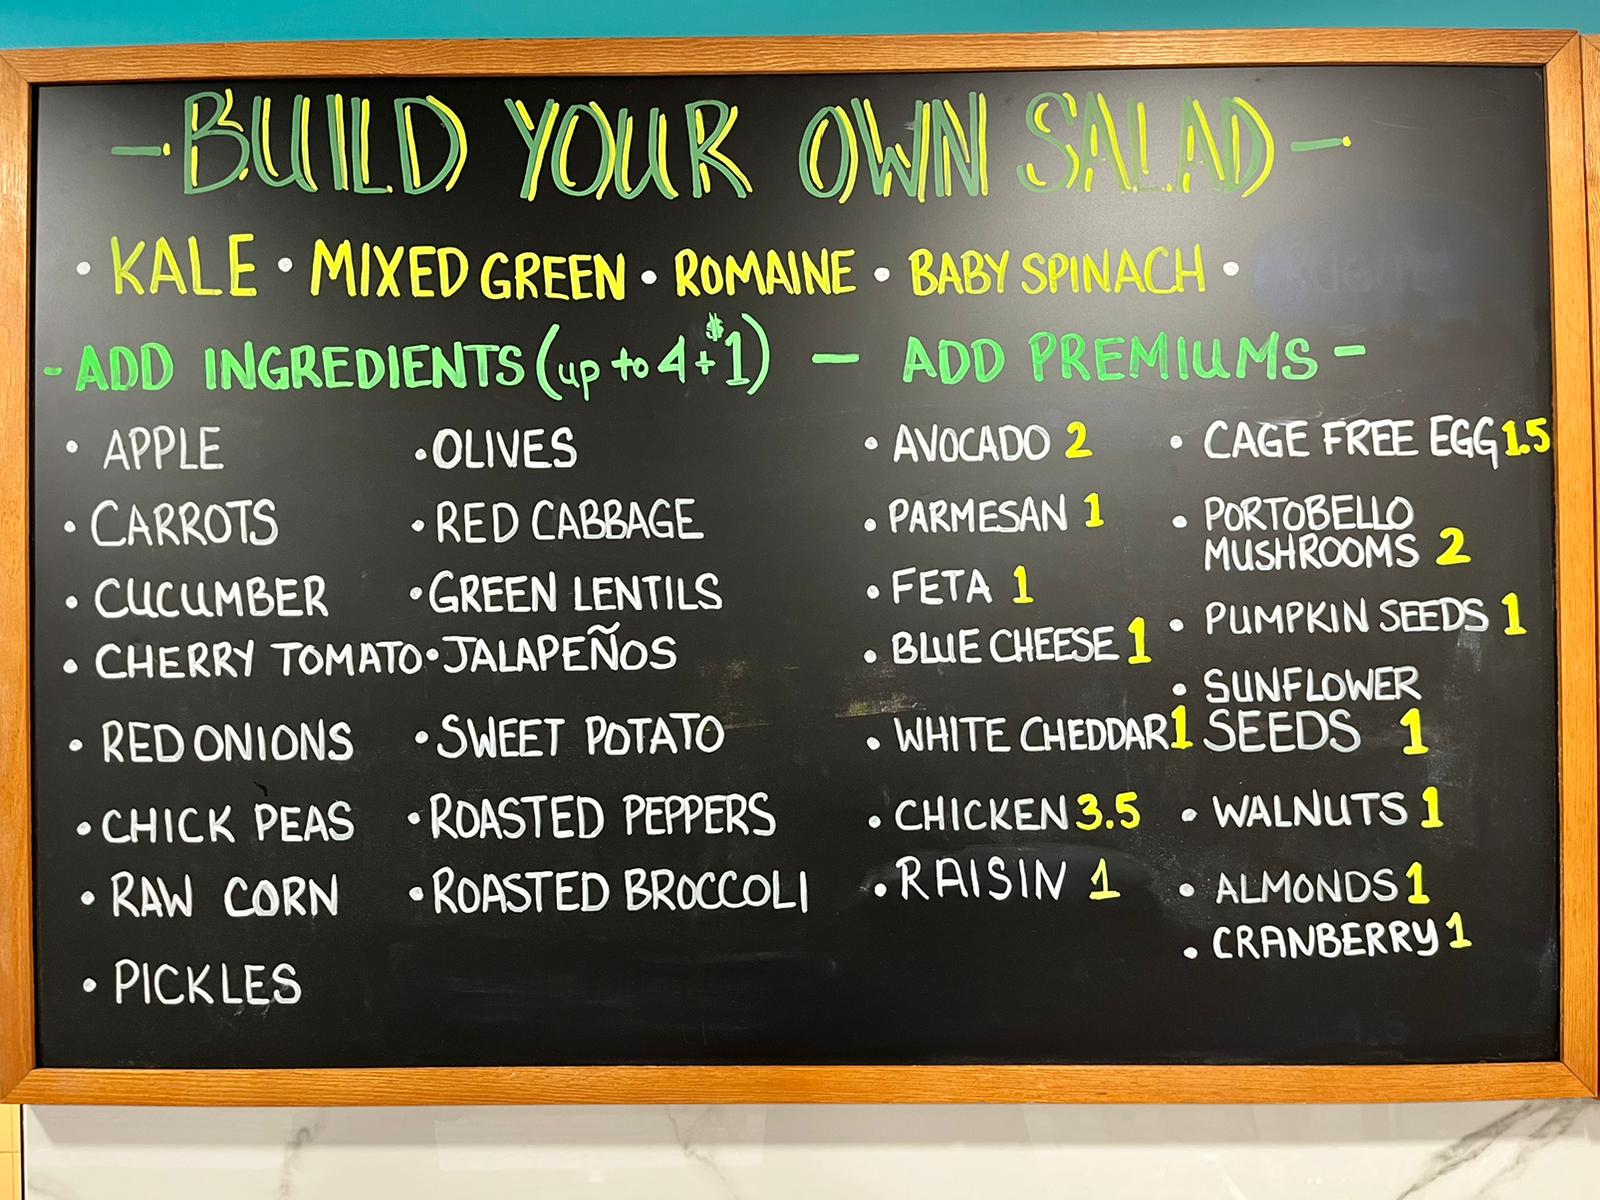 -BUILD YOUR OWN SALAD-
• KALE • MIXED GREEN • ROMAINE • BABY SPINACH •
-ADD INGREDIENTS (up to 4 + $1) — ADD PREMIUMS -
• APPLE
• CARROTS
• CUCUMBER
• CHERRY TOMATO
• RED ONIONS
• CHICK PEAS
• RAW CORN
• PICKLES
• OLIVES
• RED CABBAGE
• GREEN LENTILS
• JALAPEÑOS
• SWEET POTATO
• ROASTED PEPPERS
• ROASTED BROCCOLI
• AVOCADO 2
• PARMESAN 1
• FETA 1
• BLUE CHEESE 1
• WHITE CHEDDAR 1
• CHICKEN 3.5
• RAISIN 1
• CAGE FREE EGG 1.5
• PORTOBELLO
MUSHROOMS 2
• PUMPKIN SEEDS 1
• SUNFLOWER
SEEDS 1
• WALNUTS 1
• ALMONDS 1
• CRANBERRY 1